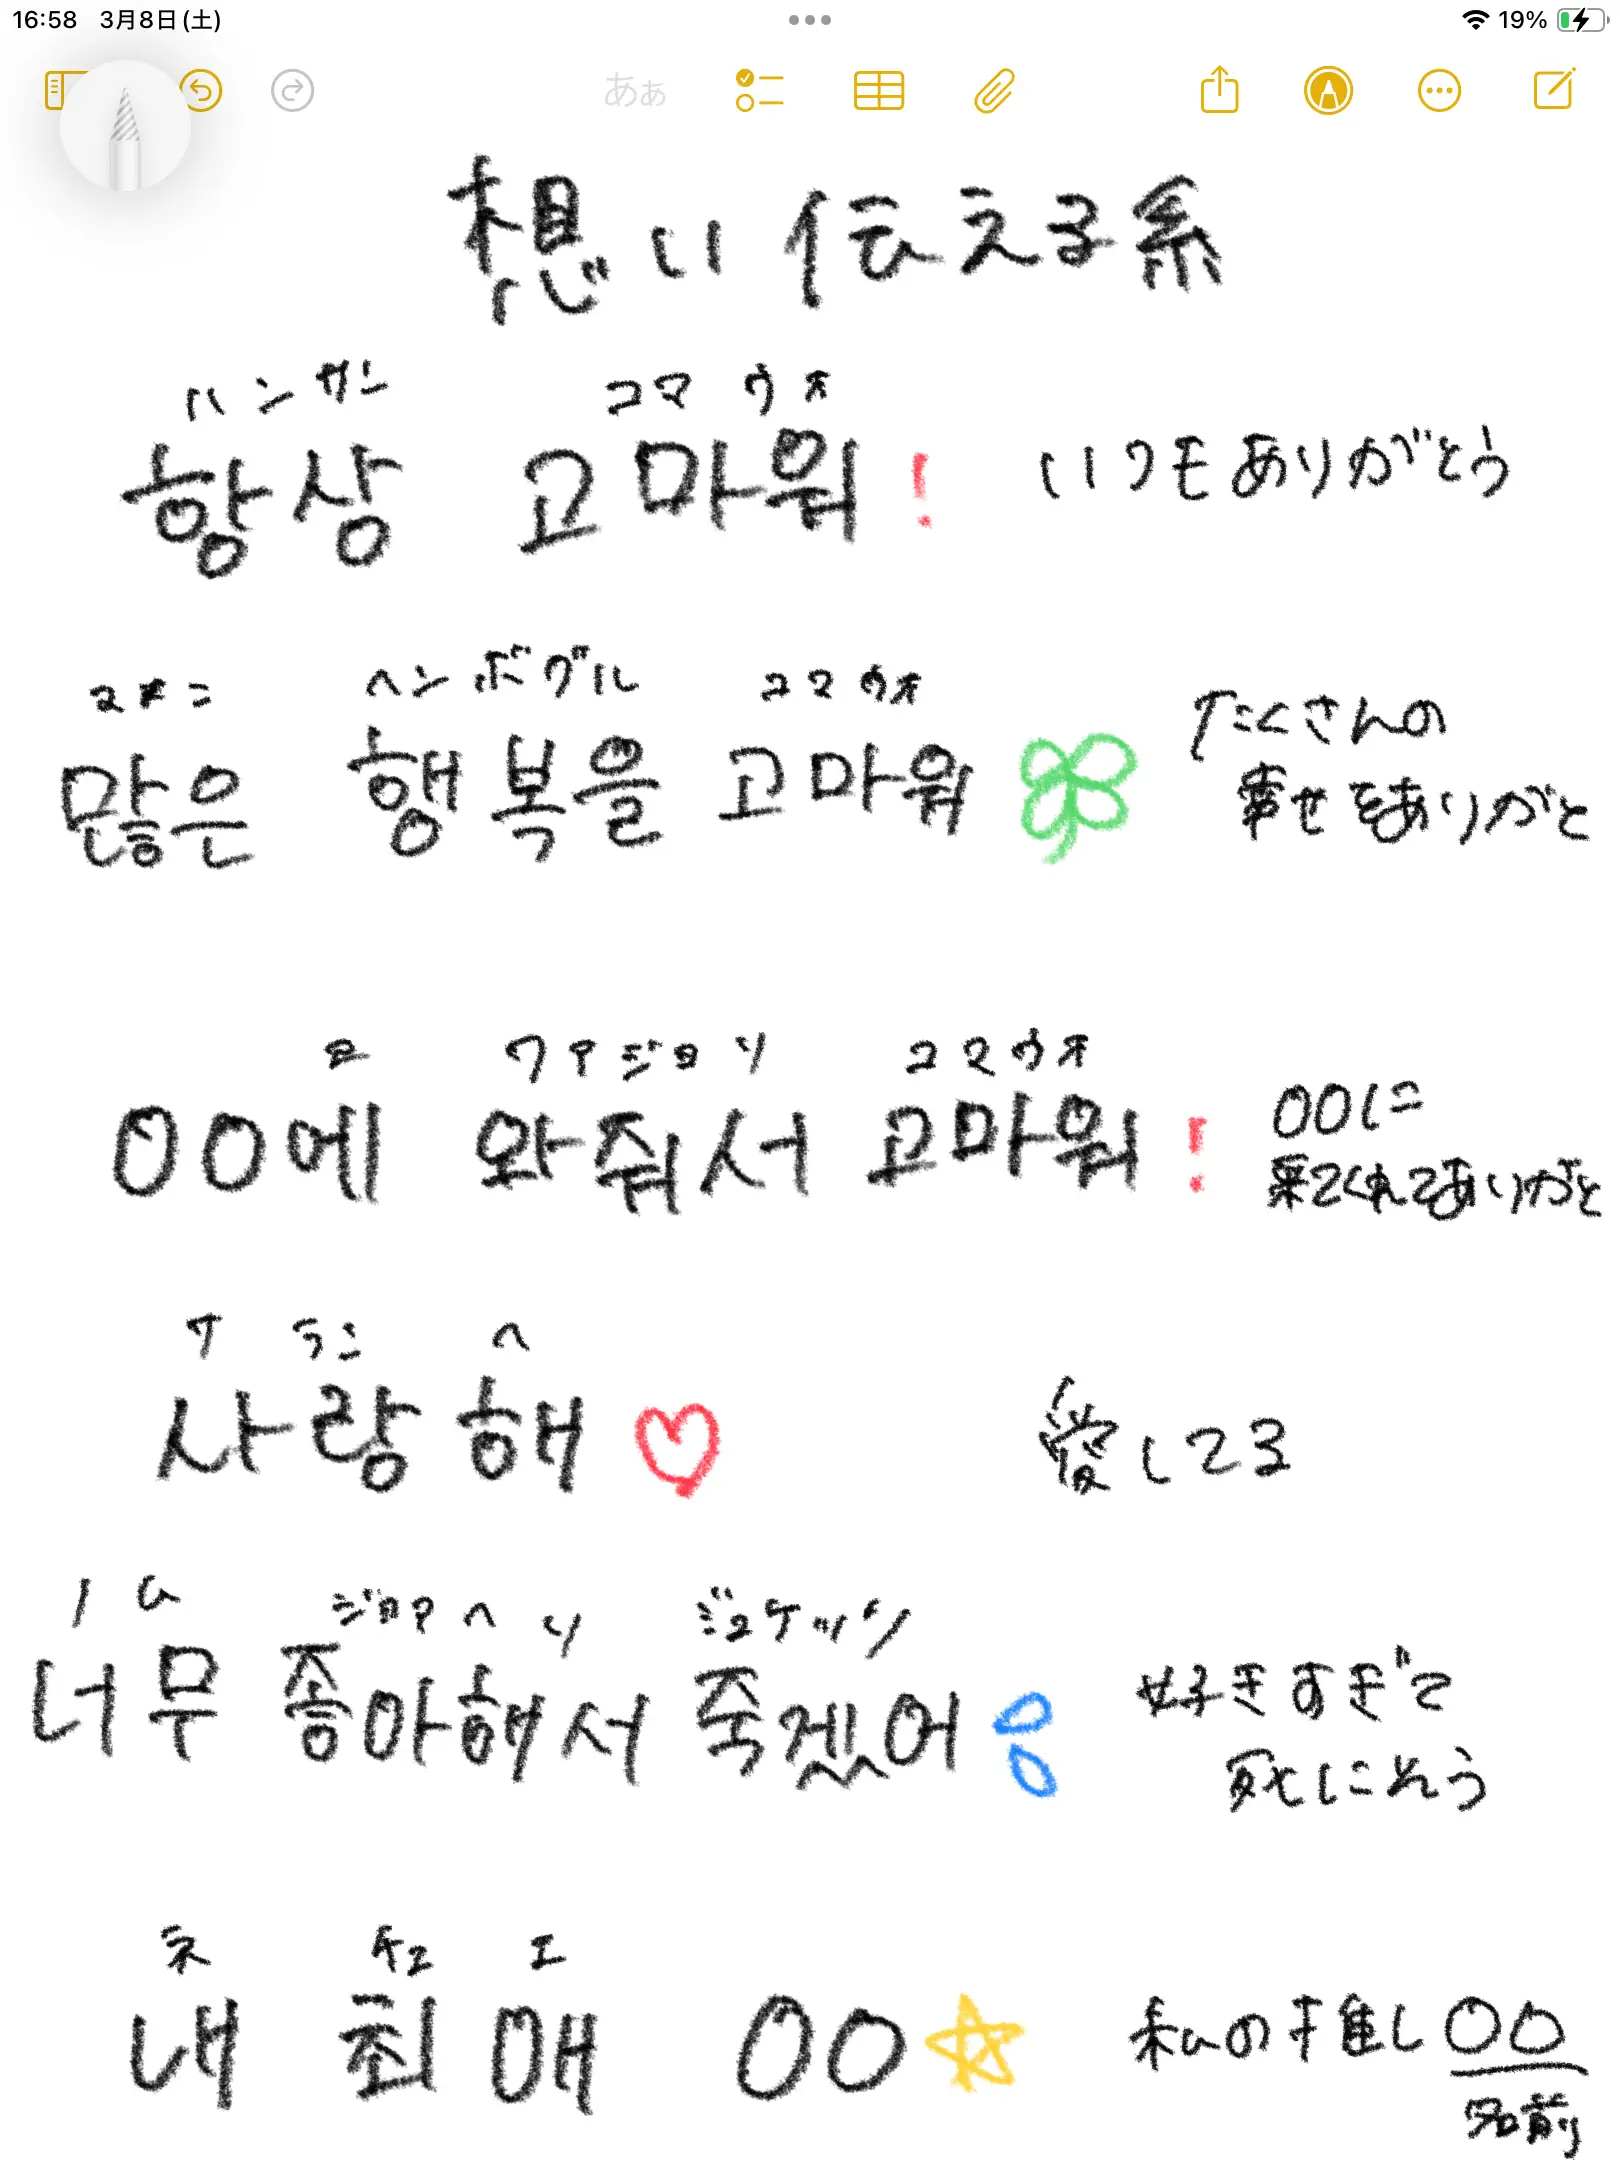 16:58 3月8日(土) 19%
あぁ
想い伝える系
ハンサン コマウォ
항상 고마워! いつもありがとう
マヌニ ヘンボグル コマウォ
많은 행복을 고마워 たくさんの
幸せをありがと
エ ワアジョソ コマウォ
○○에 와줘서 고마워! ○○に
来てくれてありがと
サ ラン ヘ
사랑해 愛してる
ノム ジョアヘソ ジュケッソ
너무 좋아해서 죽겠어 好きすぎて
死にそう
ネ チェ エ
내 최애 ○○ 私の推し○○
名前